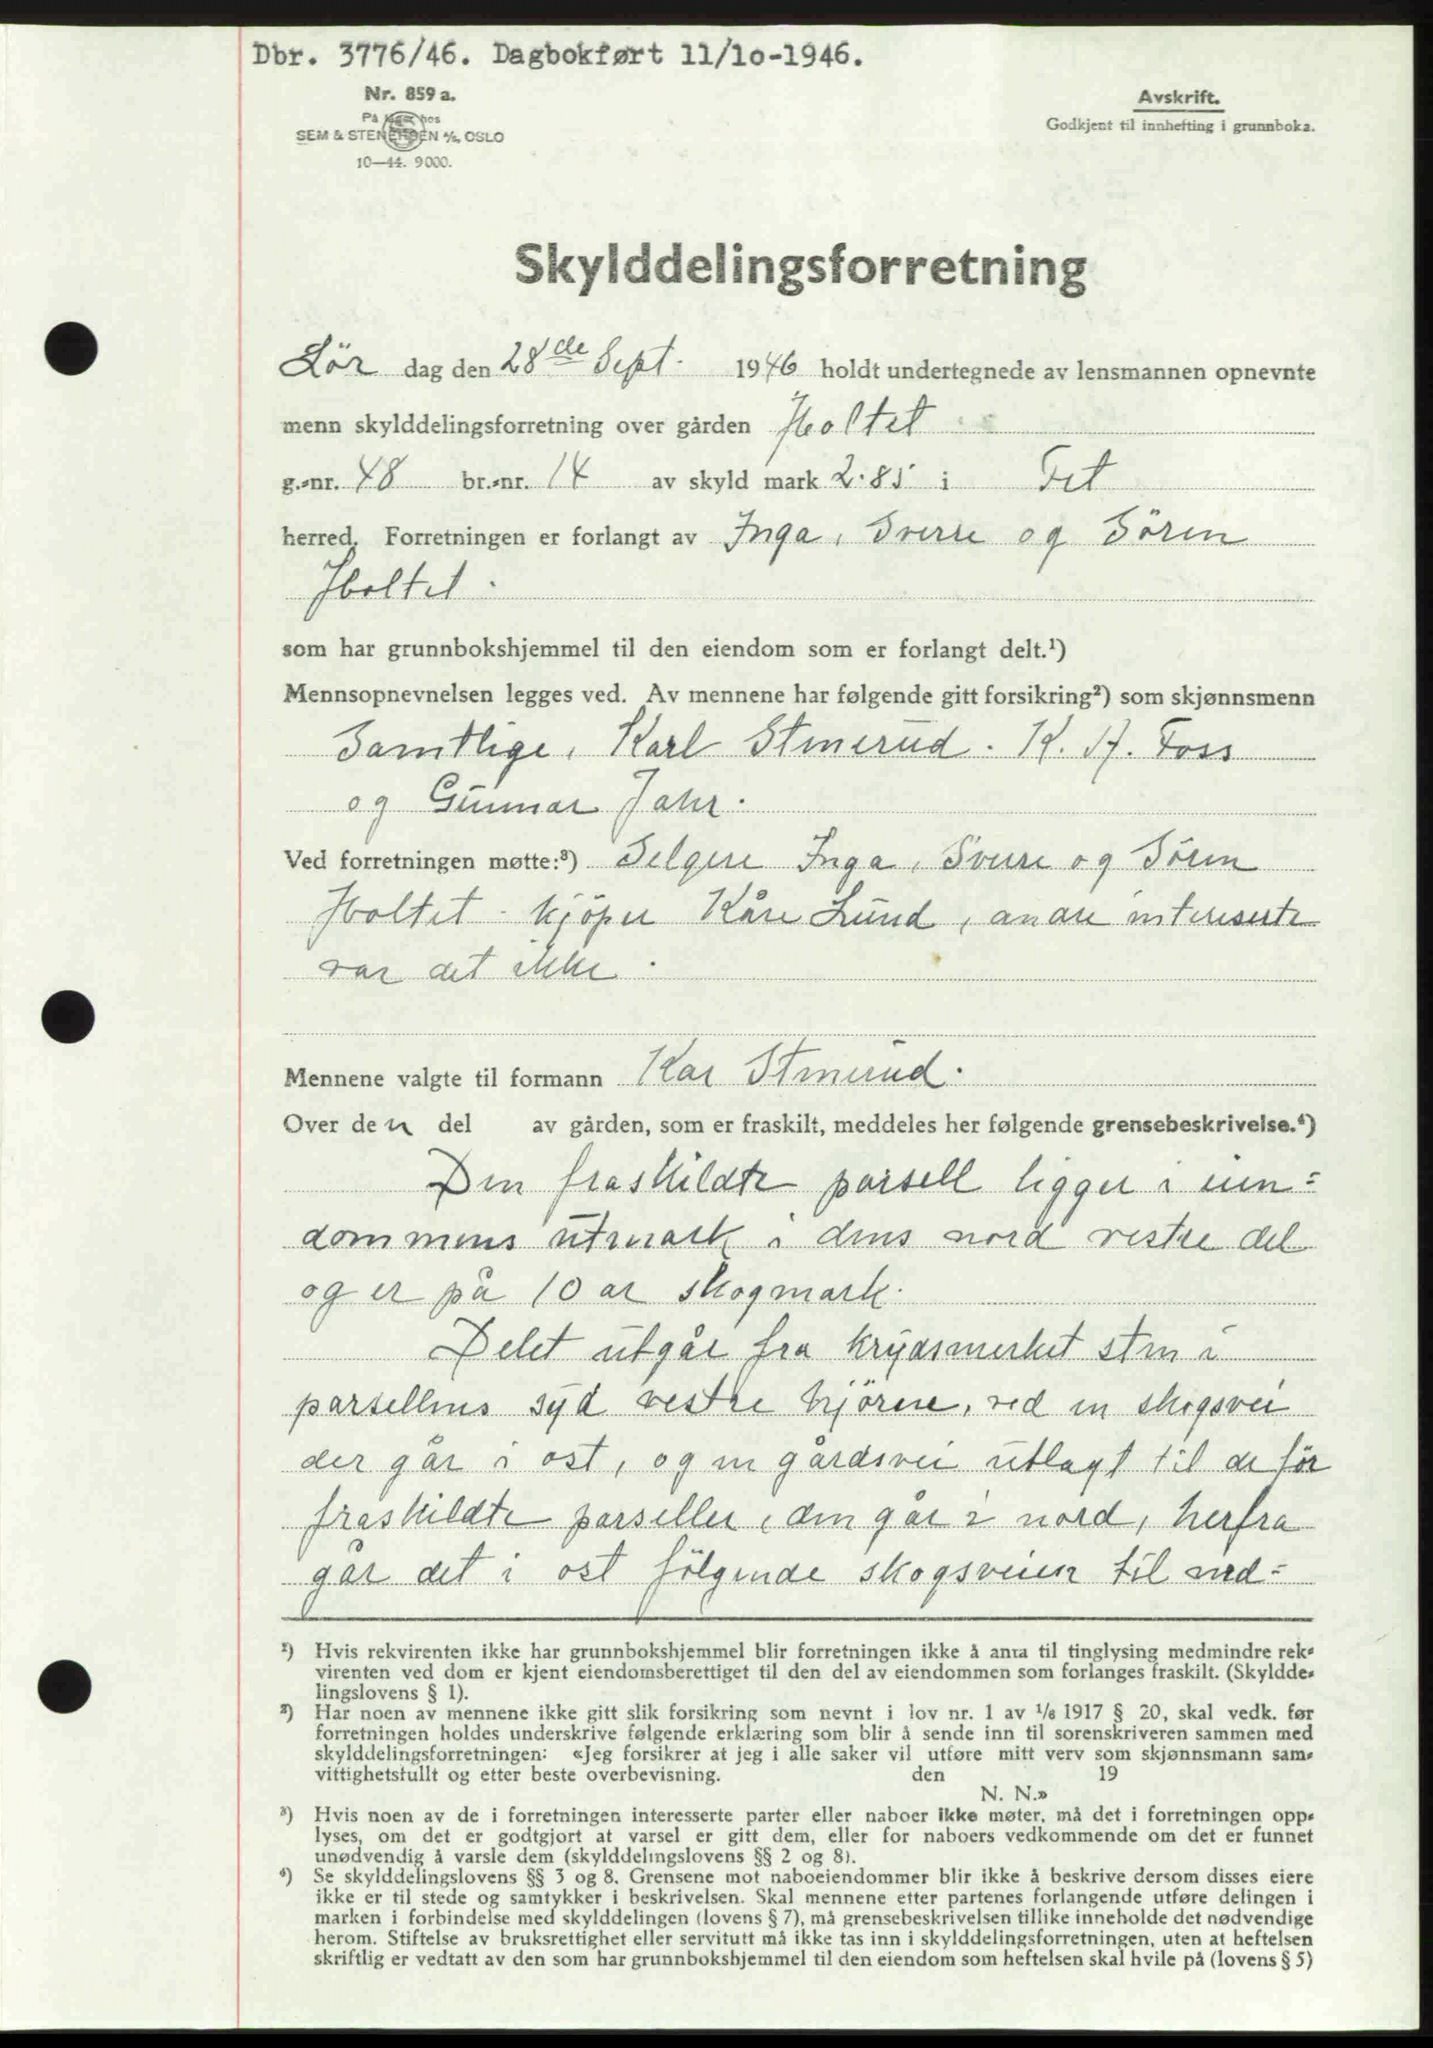 Dbr. 3776/46. Dagbokført 11/10-1946.
Nr. 859 a.
På lager hos
SEM & STENERSEN A/S, OSLO
10—44. 9000.
Avskrift.
Godkjent til innhefting i grunnboka.
Skylddelingsforretning
Lör dag den 28de Sept. 1946 holdt undertegnede av lensmannen opnevnte
menn skylddelingsforretning over gården Holtet
g.-nr. 48 br.-nr. 14 av skyld mark 2.85 i Fet
herred. Forretningen er forlangt av Inga, Sverre og Sören
Holtet.
som har grunnbokshjemmel til den eiendom som er forlangt delt.¹)
Mennsopnevnelsen legges ved. Av mennene har følgende gitt forsikring²) som skjønnsmenn
Samtlige, Karl Stmerud. K. A. Foss
og Gunnar Jahr.
Ved forretningen møtte:³) Selgere Inga, Sverre og Sören
Holtet. kjöper Kåre Lund, andre intereserte
var det ikke.
Mennene valgte til formann Kar Stmerud.
Over den del av gården, som er fraskilt, meddeles her følgende grensebeskrivelse.⁴)
Den fraskildte parsell ligger i eien=
dommens utmark i dens nord vestre del
og er på 10 ar skogmark.
Delet utgår fra krydsmerket sten i
parsellens syd vestre hjörne, ved en skogsvei
der går i ost, og en gårdsvei utlagt til de för
fraskildte parseller, den går i nord, herfra
går det i ost fölgende skogsveien til ned=
¹) Hvis rekvirenten ikke har grunnbokshjemmel blir forretningen ikke å anta til tinglysing medmindre rek-
virenten ved dom er kjent eiendomsberettiget til den del av eiendommen som forlanges fraskilt. (Skyldde-
lingslovens § 1).
²) Har noen av mennene ikke gitt slik forsikring som nevnt i lov nr. 1 av ¹/₆ 1917 § 20, skal vedk. før
forretningen holdes underskrive følgende erklæring som blir å sende inn til sorenskriveren sammen med
skylddelingsforretningen: «Jeg forsikrer at jeg i alle saker vil utføre mitt verv som skjønnsmann sam-
vittighetsfullt og etter beste overbevisning. den 19
N. N.»
³) Hvis noen av de i forretningen interesserte parter eller naboer ikke møter, må det i forretningen opp-
lyses, om det er godtgjort at varsel er gitt dem, eller for naboers vedkommende om det er funnet
unødvendig å varsle dem (skylddelingslovens §§ 2 og 8).
⁴) Se skylddelingslovens §§ 3 og 8. Grensene mot naboeiendommer blir ikke å beskrive dersom disses eiere
ikke er til stede og samtykker i beskrivelsen. Skal mennene etter partenes forlangende utføre delingen i
marken i forbindelse med skylddelingen (lovens § 7), må grensebeskrivelsen tillike inneholde det nødvendige
herom. Stiftelse av bruksrettighet eller servitutt må ikke tas inn i skylddelingsforretningen, uten at heftelsen
skriftlig er vedtatt av den som har grunnbokshjemmel til den eiendom som heftelsen skal hvile på (lovens § 5)